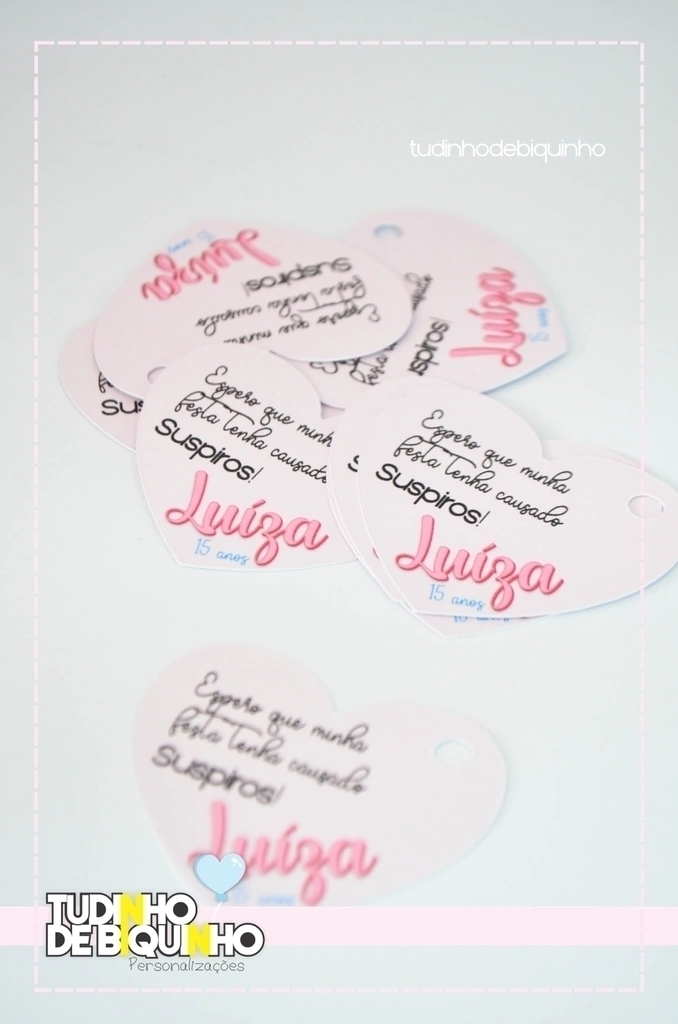 tudinhodebiquinho
15 anos
Luíza
Suspiros!
festa tenha causado
Espero que minha
Suspiros!
Luíza
Sus
Espero que minh
festa tenha causado
Suspiros!
Luíza
15 anos
Espero que minha
festa tenha causado
Suspiros!
Luíza
15 anos
Espero que minha
festa tenha causado
Suspiros!
Luíza
TUDINHO
DE BIQUINHO
Personalizações